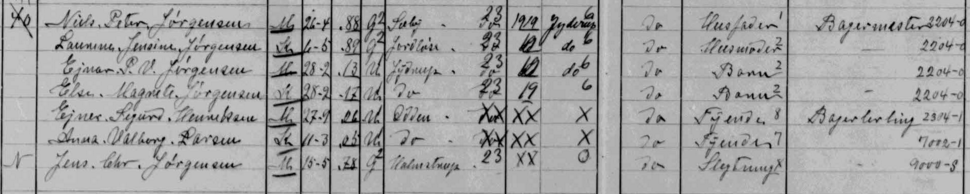 40 Niels Peter Jørgensen M 26-4 88 G2 23 1919 Jyderup 6 do Husfader 1 Bagermester 2204-0
Laurine Jensine Jørgensen K 1-5 89 G2 Jordløse 23 do 6 do Husmoder 2 2204-0
Ejnar P. V. Jørgensen M 28-2 13 U Jyderup 23 do 6 do Barn 2 2204-0
Else Magrete Jørgensen K 28-2 17 U do 23 19 6 do Barn 2 2204-0
Ejner Sigurd Henriksen M 27-9 06 U Odden XX XX X do Tyende 8 Bagerlerling 2304-1
Anna Valborg Larsen K 11-3 05 U do XX XX X do Tyende 7 7002-1
N Jens Chr. Jørgensen M 15-5 78 G2 23 XX 0 do 9000-8